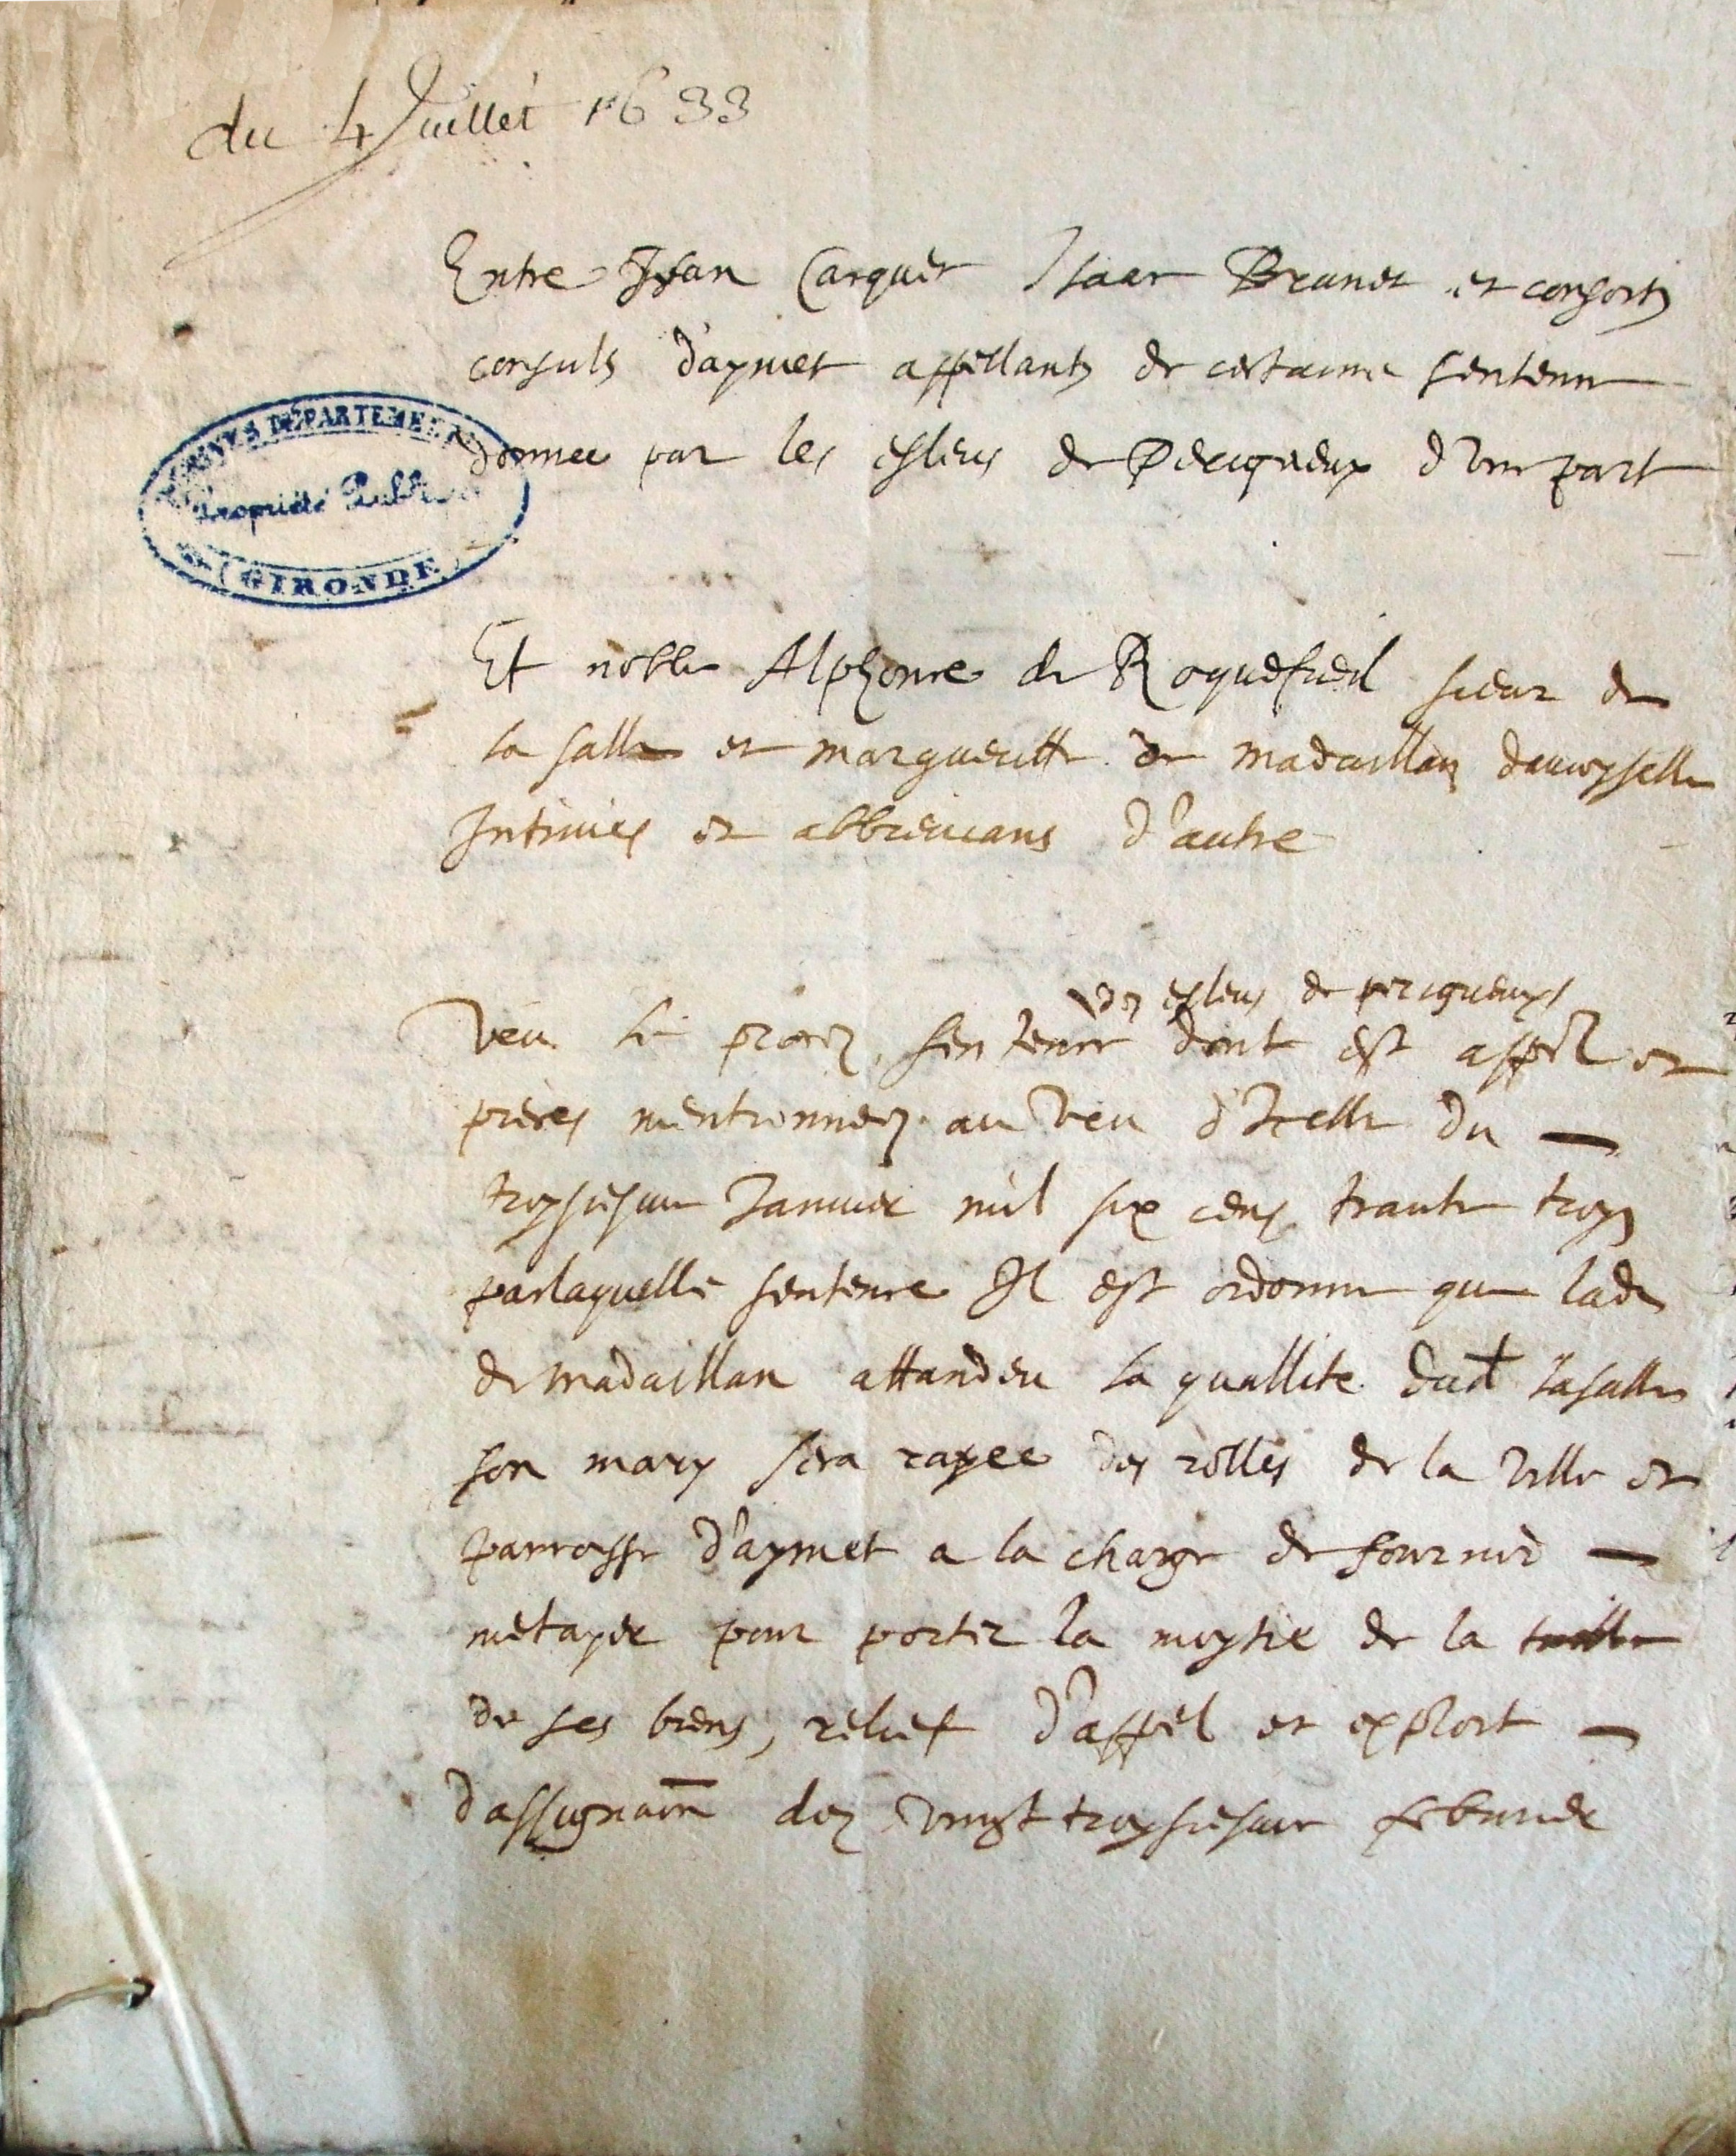 du 4 Juillet 1633
Entre Jean Carquet Isaac Brunet et consortz
consuls d'aymet appellantz de certaine sentence
ARCHIVES DÉPARTEMENTALES
donnee par les esleus de Perigueux d'une part
Propriété Publique
GIRONDE
Et noble Alphonce de Roquefueil sieur de
la salle et margueritte de madaillan damoyselle
Intimes et d'autre
des esleus de perigueux
Veu le procez sentence dont est appel et
pieces mentionnez au Veu d'Icelle du
troysiesme Januier mil six cens trante troys
parlaquelle sentence Il est ordonne que lade
de madaillan attandeu la quallite dud lasalle
son mary sera rayee des rolles de la Ville et
parroisse d'aymet a la charge de fournir
metayer pour porter la moytie de la taille
de ses biens, relief d'appel et exploit
dassignaon dez vingt troysiesme feburier